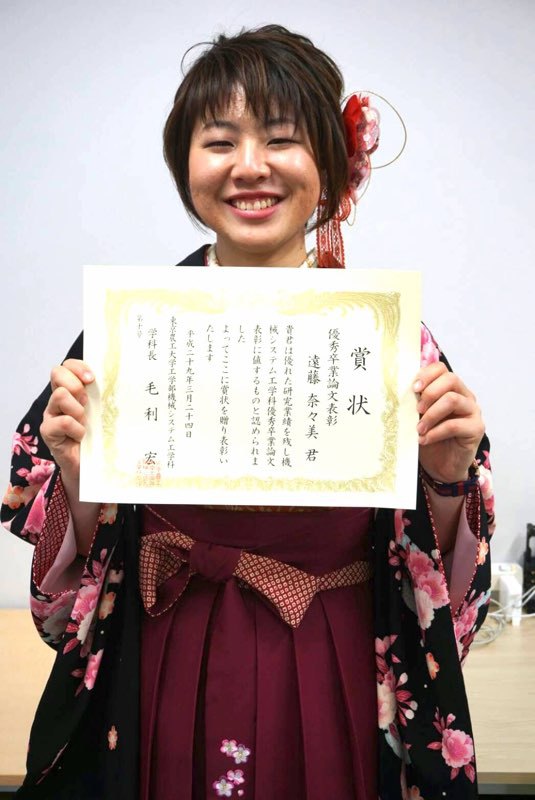 賞状
優秀卒業論文表彰
遠藤 奈々美 君
貴君は優れた研究業績を残し機
械システム工学科優秀卒業論文
表彰に値するものと認められま
した
よってここに賞状を贈り表彰い
たします
平成二十九年三月二十四日
東京農工大学工学部機械システム工学科
学科長 毛利 宏